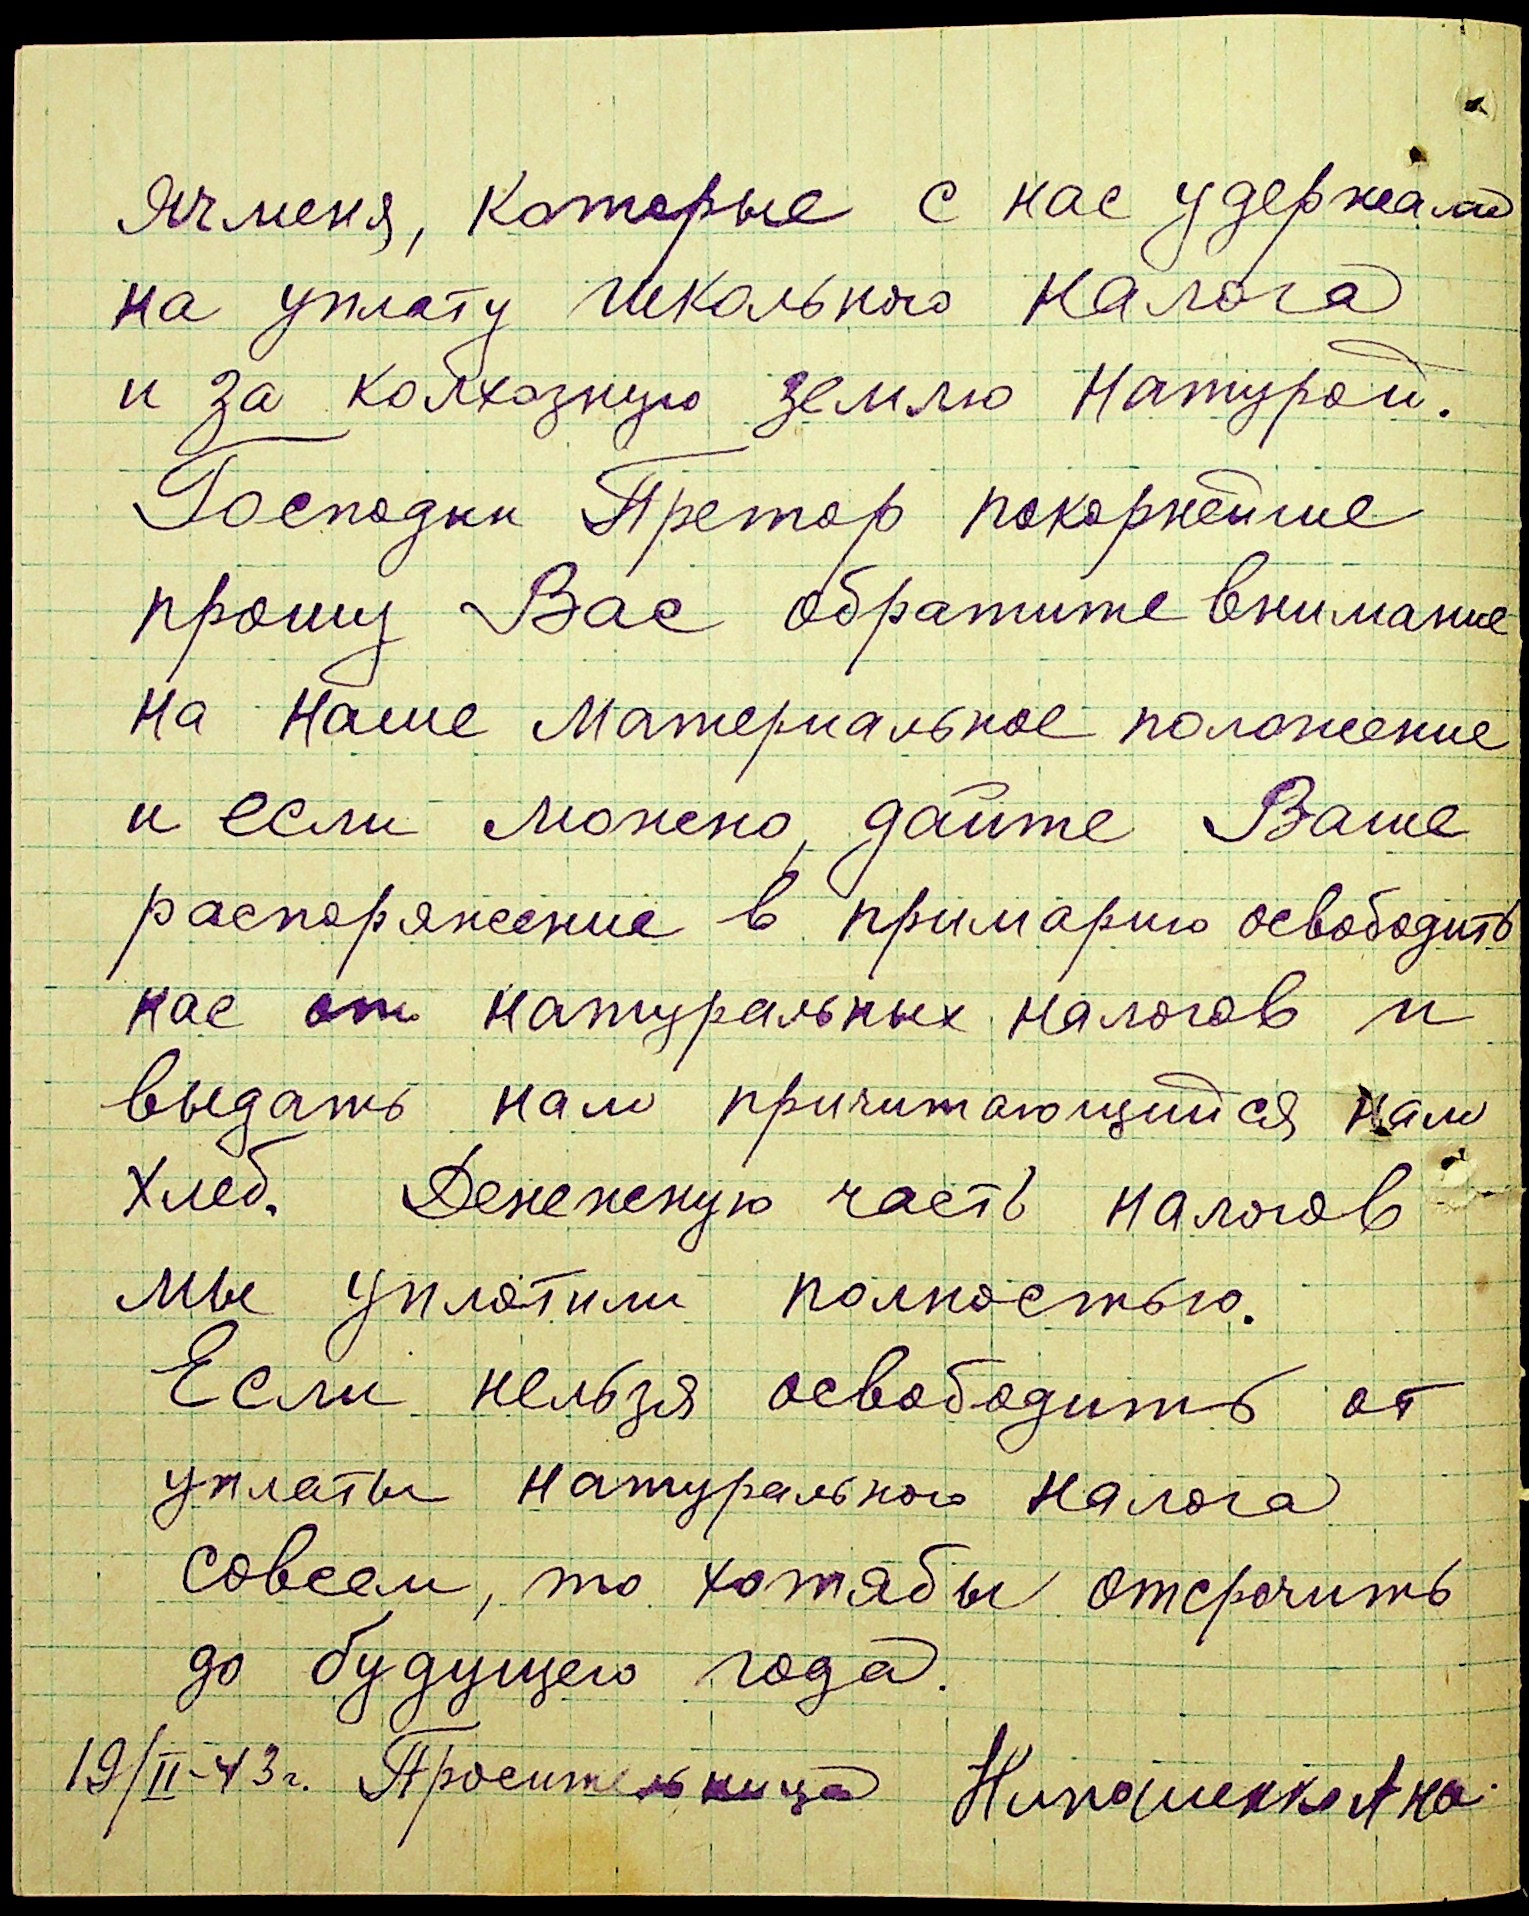 ячменя, которые с нас удержали
на уплату школьного налога
и за колхозную землю натурой.
Господин Претор покорнейше
прошу Вас обратите внимание
на наше материальное положение
и если можно, дайте Ваше
распоряжение в примарию освободить
нас от натуральных налогов и
выдать нам причитающийся нам
хлеб. Денежную часть налогов
мы уплотили полностью.
Если нельзя освободить от
уплаты натурального налога
совсем, то хотябы отсрочить
до будущего года.
19/II-43г. Просительница